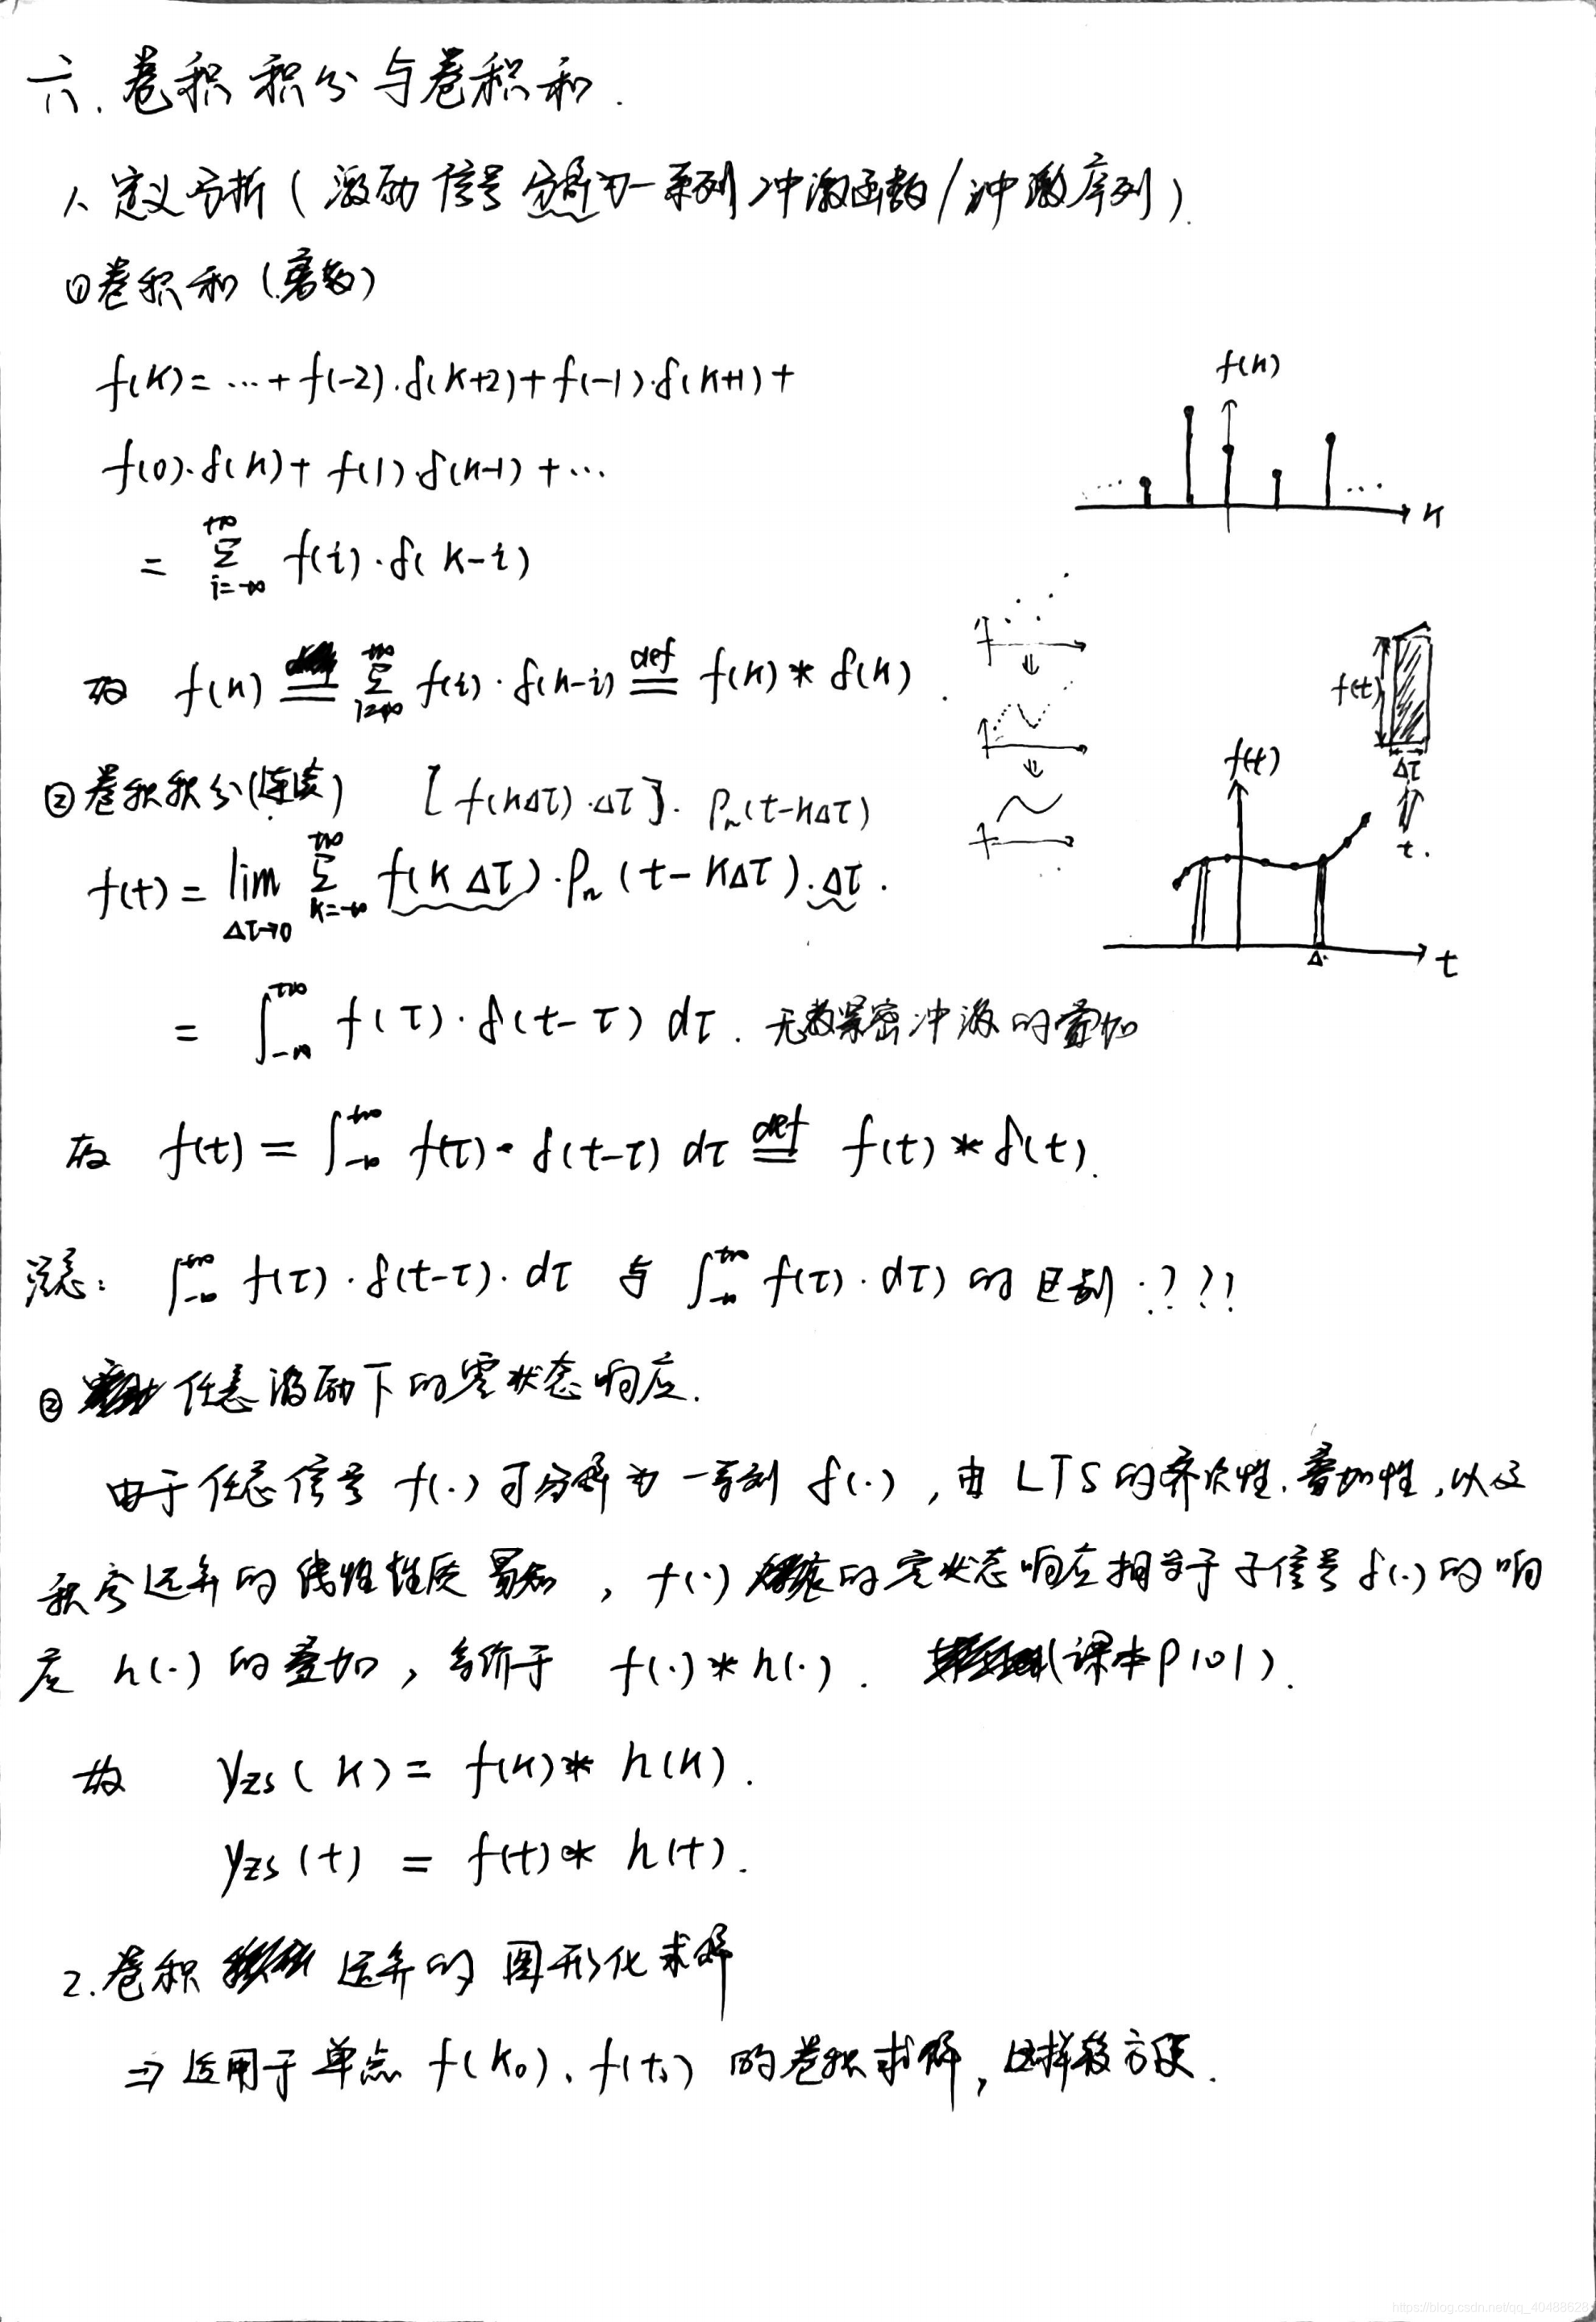 六、卷积积分与卷积和.
1、定义分析(激励信号分解为一系列冲激函数/冲激序列).
①卷积和(离散)
f(k)= …+ f(-2)·δ(k+2)+f(-1)·δ(k+1)+
f(0)·δ(k)+ f(1)·δ(k-1)+…
= Σ_{i=-∞}^{+∞} f(i)·δ(k-i)
f(k)
k
故 f(k) = Σ_{i=-∞}^{+∞} f(i)·δ(k-i) def= f(k)*δ(k).
②卷积积分(连续) [f(kΔτ)·Δτ]·Pn(t-kΔτ)
f(t)= lim_{Δτ→0} Σ_{k=-∞}^{+∞} f(kΔτ)·Pn(t-kΔτ)·Δτ.
f(t)
Δτ
t.
f(t)
t
= ∫_{-∞}^{+∞} f(τ)·δ(t-τ) dτ. 无数紧密冲激的叠加
故 f(t)=∫_{-∞}^{+∞} f(τ)·δ(t-τ) dτ def= f(t)*δ(t).
注意: ∫_{-∞}^{+∞} f(τ)·δ(t-τ)·dτ 与 ∫_{-∞}^{+∞} f(τ)·dτ) 的区别.???
② 任意激励下的零状态响应.
由于任意信号 f(·)可分解为一系列 δ(·),由LTS的齐次性、叠加性,以及
积分运算的线性性质易知,f(·)的零状态响应相当于子信号δ(·)的响
应 h(·)的叠加,等价于 f(·)*h(·). (课本P101).
故 yzs(k)= f(k)* h(k).
yzs(t) = f(t)* h(t).
2.卷积运算的图形化求解
⇒适用于单点 f(k₀)、f(t₀) 的卷积求解,这样较方便.
https://blog.csdn.net/qq_40488628